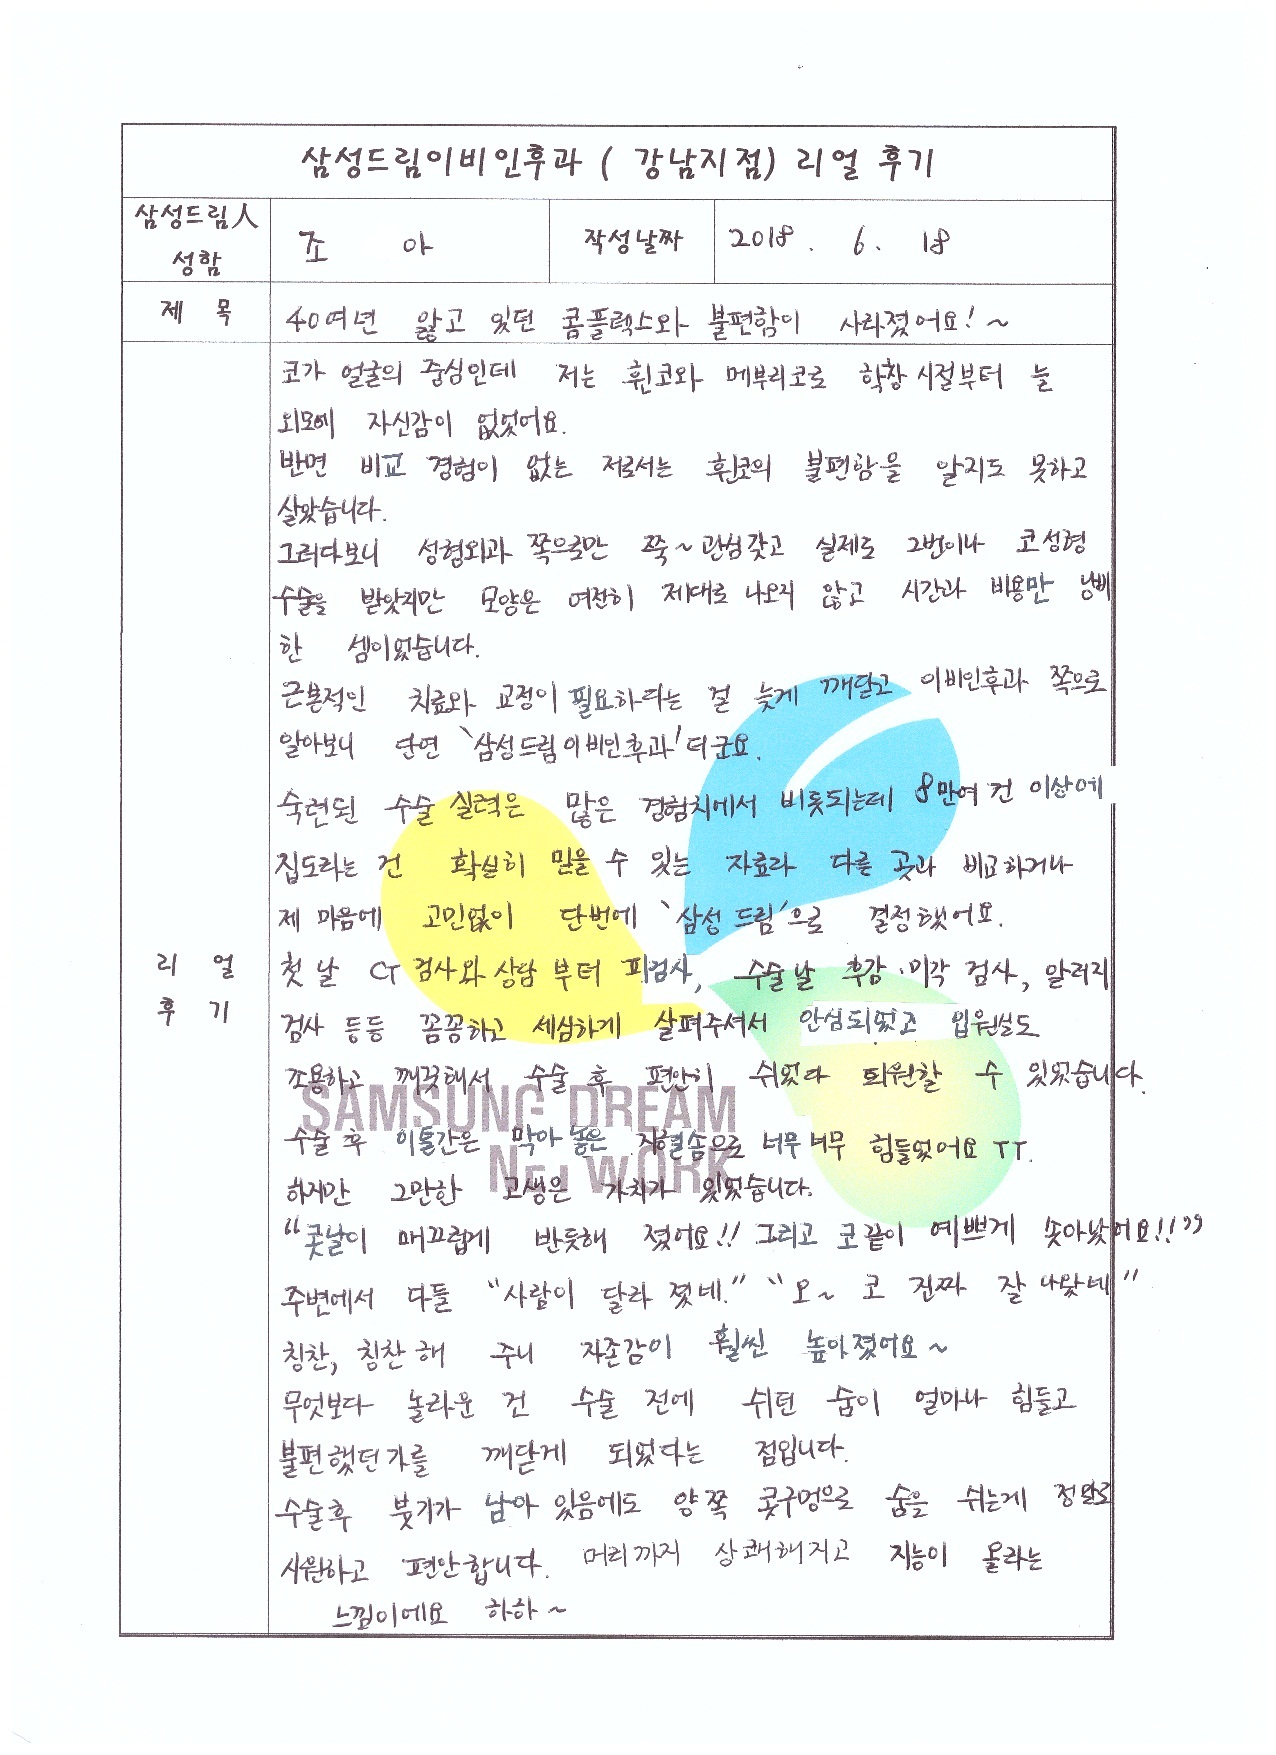 삼성드림이비인후과 ( 강남지점) 리얼 후기
삼성드림人
성함
조 아
작성날짜
2018. 6. 18
제 목
40여년 앓고 있던 콤플렉스와 불편함이 사라졌어요! ~
리 얼
후 기
코가 얼굴의 중심인데 저는 휜코와 메부리코로 학창시절부터 늘
외모에 자신감이 없었어요.
반면 비교 경험이 없는 저로서는 휜코의 불편함을 알지도 못하고
살았습니다.
그러다보니 성형외과 쪽으로만 쭉~ 관심갖고 실제로 2번이나 코성형
수술을 받았지만 모양은 여전히 제대로 나오지 않고 시간과 비용만 낭비
한 셈이었습니다.
근본적인 치료와 교정이 필요하다는 걸 늦게 깨닫고 이비인후과 쪽으로
알아보니 단연 '삼성드림이비인후과'더군요.
숙련된 수술 실력은 많은 경험치에서 비롯되는데 8만여 건 이상에
집도라는 건 확실히 믿을 수 있는 자료라 다른 곳과 비교하거나
제 마음에 고민없이 단번에 '삼성드림'으로 결정했어요.
첫날 CT 검사와 상담부터 피검사, 수술날 후각·미각 검사, 알러지
검사 등등 꼼꼼하고 세심하게 살펴주셔서 안심되었고 입원실도
조용하고 깨끗해서 수술 후 편안히 쉬었다 퇴원할 수 있었습니다.
SAMSUNG DREAM
NETWORK
수술 후 이틀간은 막아 놓은 지혈솜으로 너무너무 힘들었어요 TT.
하지만 그만한 고생은 가치가 있었습니다.
"콧날이 매끄럽게 반듯해 졌어요!! 그리고 코끝이 예쁘게 솟아났어요!!"
주변에서 다들 "사람이 달라 졌네." "오~ 코 진짜 잘 나왔네"
칭찬, 칭찬해 주니 자존감이 훨씬 높아졌어요~
무엇보다 놀라운 건 수술 전에 쉬던 숨이 얼마나 힘들고
불편했던가를 깨닫게 되었다는 점입니다.
수술후 붓기가 남아 있음에도 양쪽 콧구멍으로 숨을 쉬는게 정말로
시원하고 편안합니다. 머리까지 상쾌해지고 지능이 올라는
느낌이에요 하하~